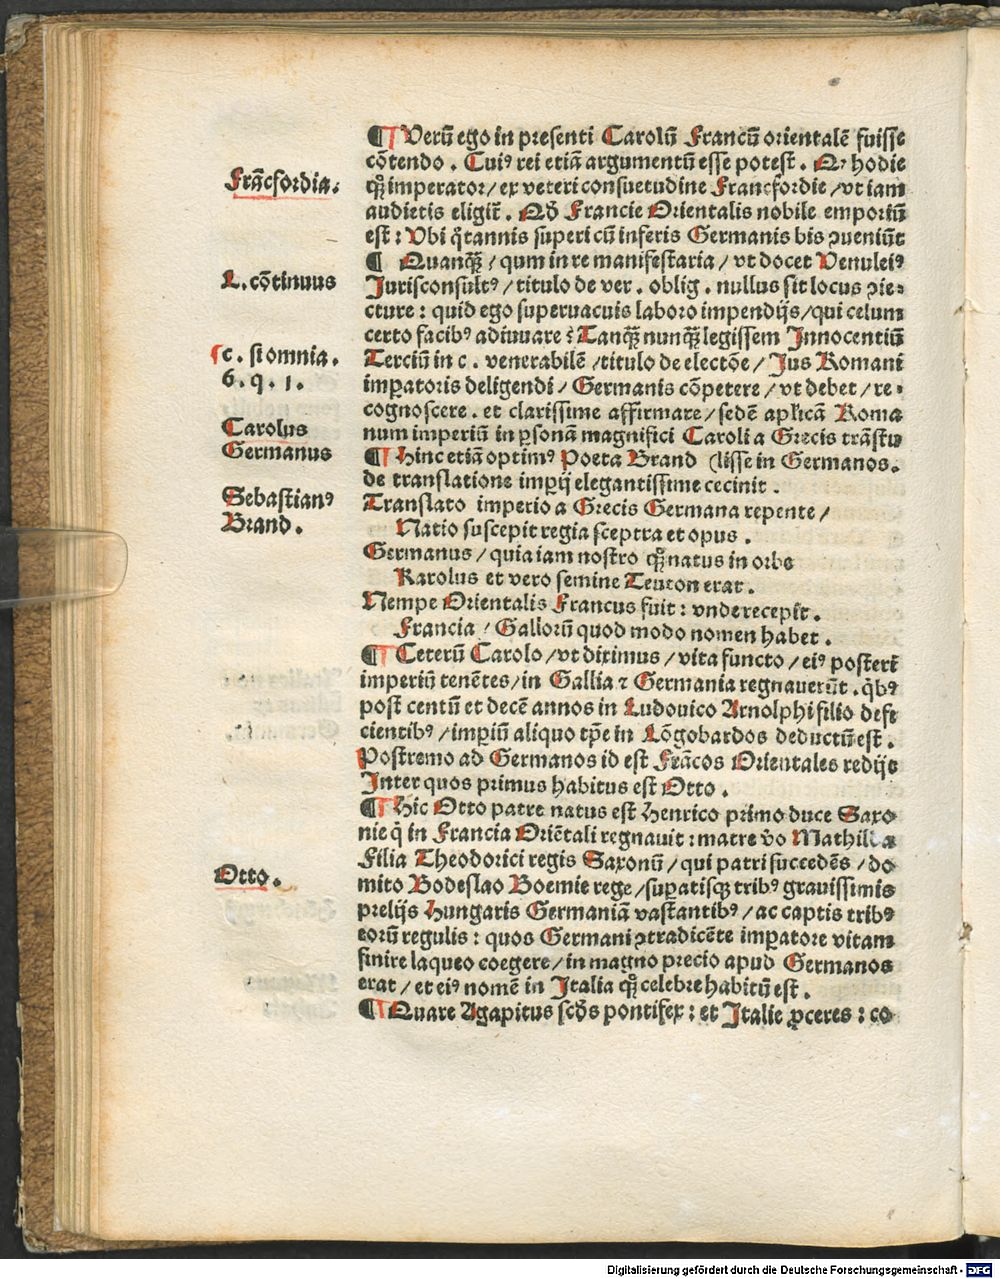 ¶ Verū ego in presenti Carolū Francū orientalē fuisse
cōtendo. Cuiꝰ rei etiā argumentū esse potest. Qꝛ hodie
Frācfordia.
qꝫ imperator/ ex veteri consuetudine Francfordie/ vt iam
audietis eligit̄. Qđ Francie Orientalis nobile emporiū
est: Vbi q̊tannis superi cū inferis Germanis bis ꝯueniūt
¶ Quanqꝫ/ qum in re manifestaria/ vt docet Venuleiꝰ
L. cōtinuus
Jurisconsultꝰ/ titulo de ver. oblig. nullus sit locus ꝯie-
cture: quid ego superuacuis laboro impendijs/ qui celum
certo facibꝰ adiuuare? Tanqꝫ nunqꝫ legissem Innocentiū
c. si omnia.
Terciū in c. venerabilē/ titulo de electōe/ Jus Romani
6. q. 1.
imꝑatoris deligendi/ Germanis cōpetere/ vt debet/ re-
cognoscere. et clarissime affirmare/ sedē apl'icā Roma
Carolus
num imperiū in ꝑsonā magnifici Caroli a Grecis trāstu
Germanus
¶ Hinc etiā optimꝰ Poeta Brand (lisse in Germanos.
de translatione imꝑij elegantissime cecinit.
Sebastianꝰ
Translato imperio a Grecis Germana repente/
Brand.
Natio suscepit regia sceptra et opus.
Germanus/ quia iam nostro qꝫ natus in orbe
Karolus et vero semine Teuton erat.
Nempe Orientalis Francus fuit: vnde recepit.
Francia/ Gallorū quod modo nomen habet.
¶ Ceterū Carolo/ vt diximus/ vita functo/ eiꝰ posteri
imperiū tenētes/ in Gallia ⁊ Germania regnauerūt. q̇bꝰ
post centū et decē annos in Ludouico Arnolphi filio defi
cientibꝰ/ imꝑiū aliquo tꝑe in Lōgobardos deductū est.
Postremo ad Germanos id est Frācos Orientales redijt
Inter quos primus habitus est Otto.
¶ Hic Otto patre natus est Henrico primo duce Saxo
nie q̇ in Francia Oriētali regnauit: matre v̊o Mathilda
Filia Theodorici regis Saxonū/ qui patri succedēs/ do
Otto.
mito Bodeslao Boemie rege/ suꝑatisqꝫ tribꝰ grauissimis
prelijs Hungaris Germaniā vastantibꝰ/ ac captis tribꝰ
eorū regulis: quos Germani ꝯtradicēte imꝑatore vitam
finire laqueo coegere/ in magno precio apud Germanos
erat/ et eiꝰ nomē in Italia qꝫ celebre habitū est.
¶ Quare Agapitus scd̄s pontifex: et Italie ꝓceres: co
Digitalisierung gefördert durch die Deutsche Forschungsgemeinschaft - DFG